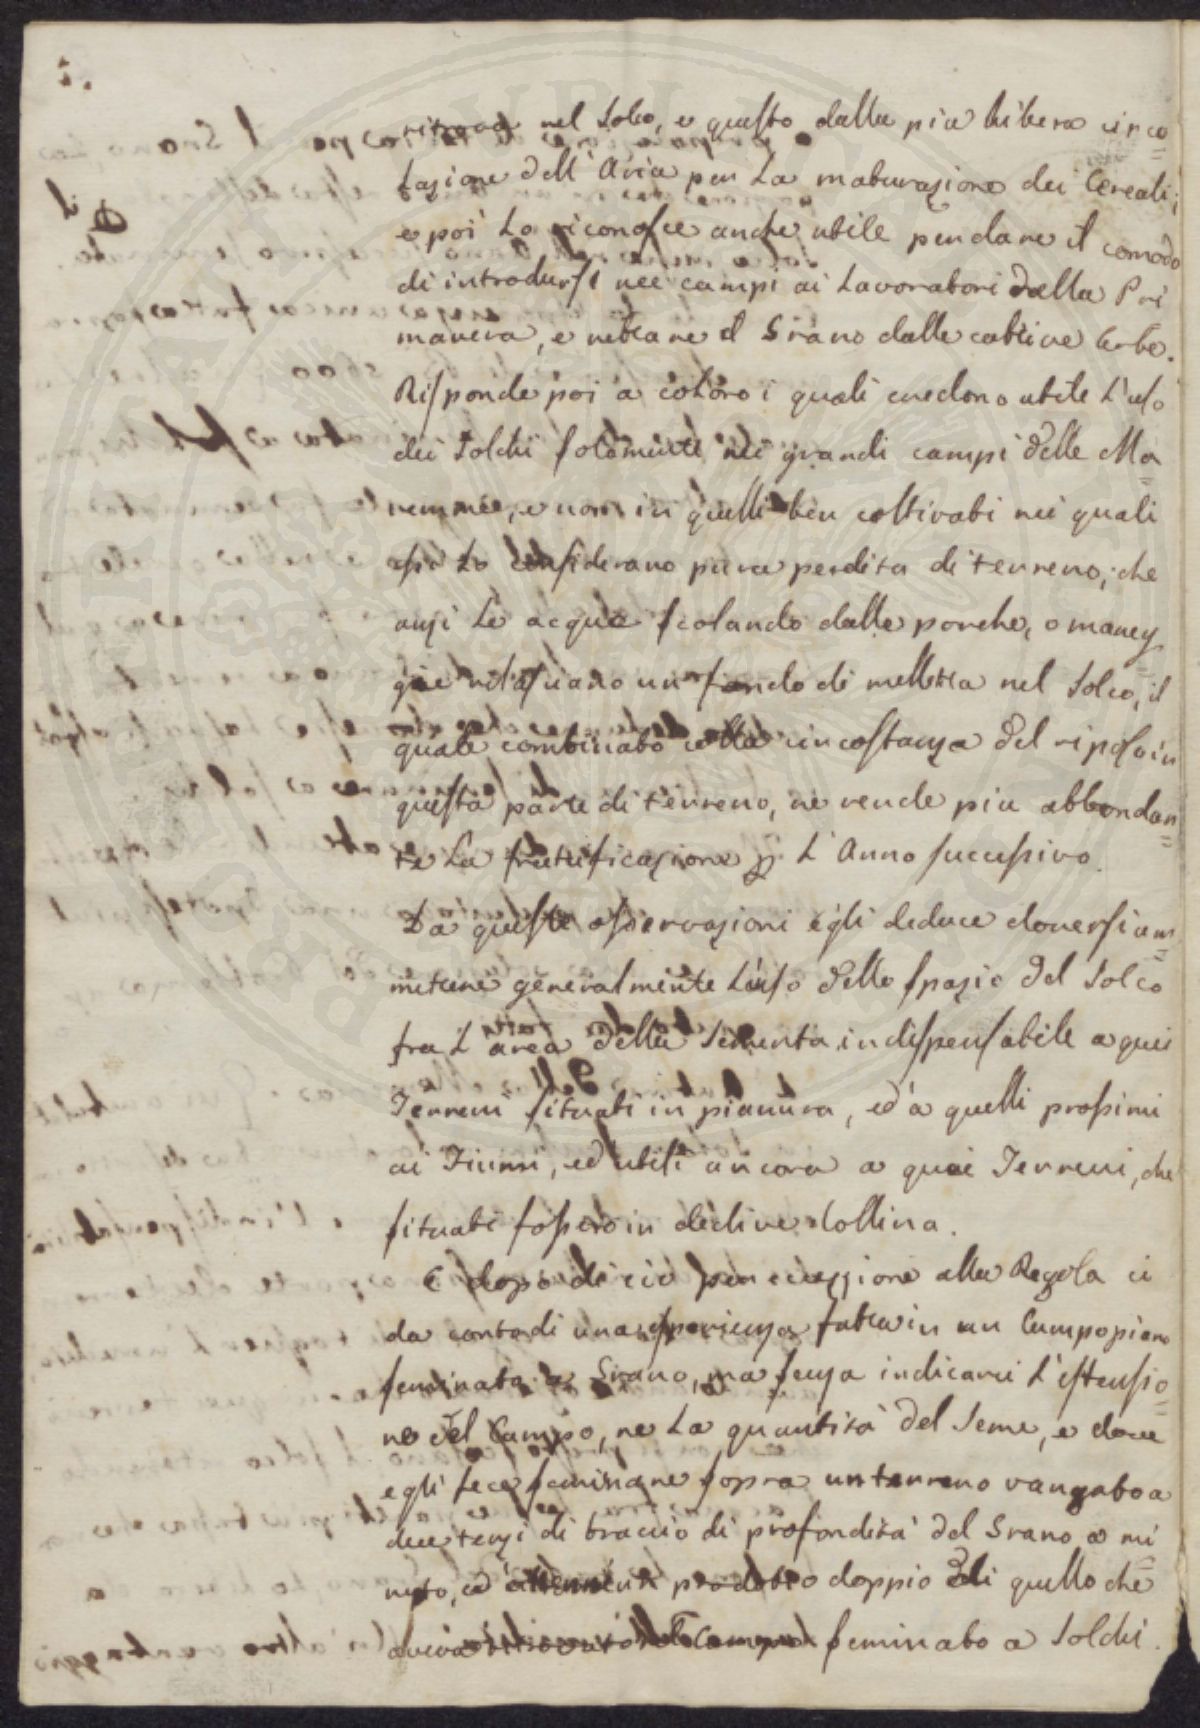 ritrova nel Solco, e questo dalla pia libera circo=
lazione dell' Aria per La maturazione dei Cereali;
e poi Lo riconosce anche utile per dare il comodo
di introdursi nei campi ai Lavoratori dalla Pri
mavera, e nettare il Grano dalle cattive Erbe.
Risponde poi a coloro i quali credono utile L'uso
dei Solchi solamente nei grandi campi delle Ma=
remme, e non in quelli ben coltivati nei quali
essi Lo considerano pura perdita di terreno; che
anzi Le acque scolando dalle porche, o maneg=
gie rilasciano un fondo di melletta nel Solco, il
quale combinato colla circostanza del riposo in
questa parte di terreno, ne rende piu abbondan=
te La fruttificazione p. L'Anno successivo.
Da queste osservazioni egli deduce doversi am=
mettere generalmente L'uso dello spazio del Solco
fra L'area della Sementa indispensabile a quei
Terreni situati in pianura, ed a quelli prossimi
ai Fiumi, ed utili ancora a quei Terreni, che
situati fossero in declive Collina.
E dopo di cio per eccezzione alla Regola ci
da conto di una sperienza fatta in un Campo piano
seminato a Grano, ma senza indicarci L'estensio=
ne del Campo, ne La quantità del Seme, e dove
egli fece seminare sopra un terreno vangato a
due terzi di braccio di profondità del Grano a mi=
nuto, ed prodotto doppio di quello che
aveva Campo seminato a Solchi.